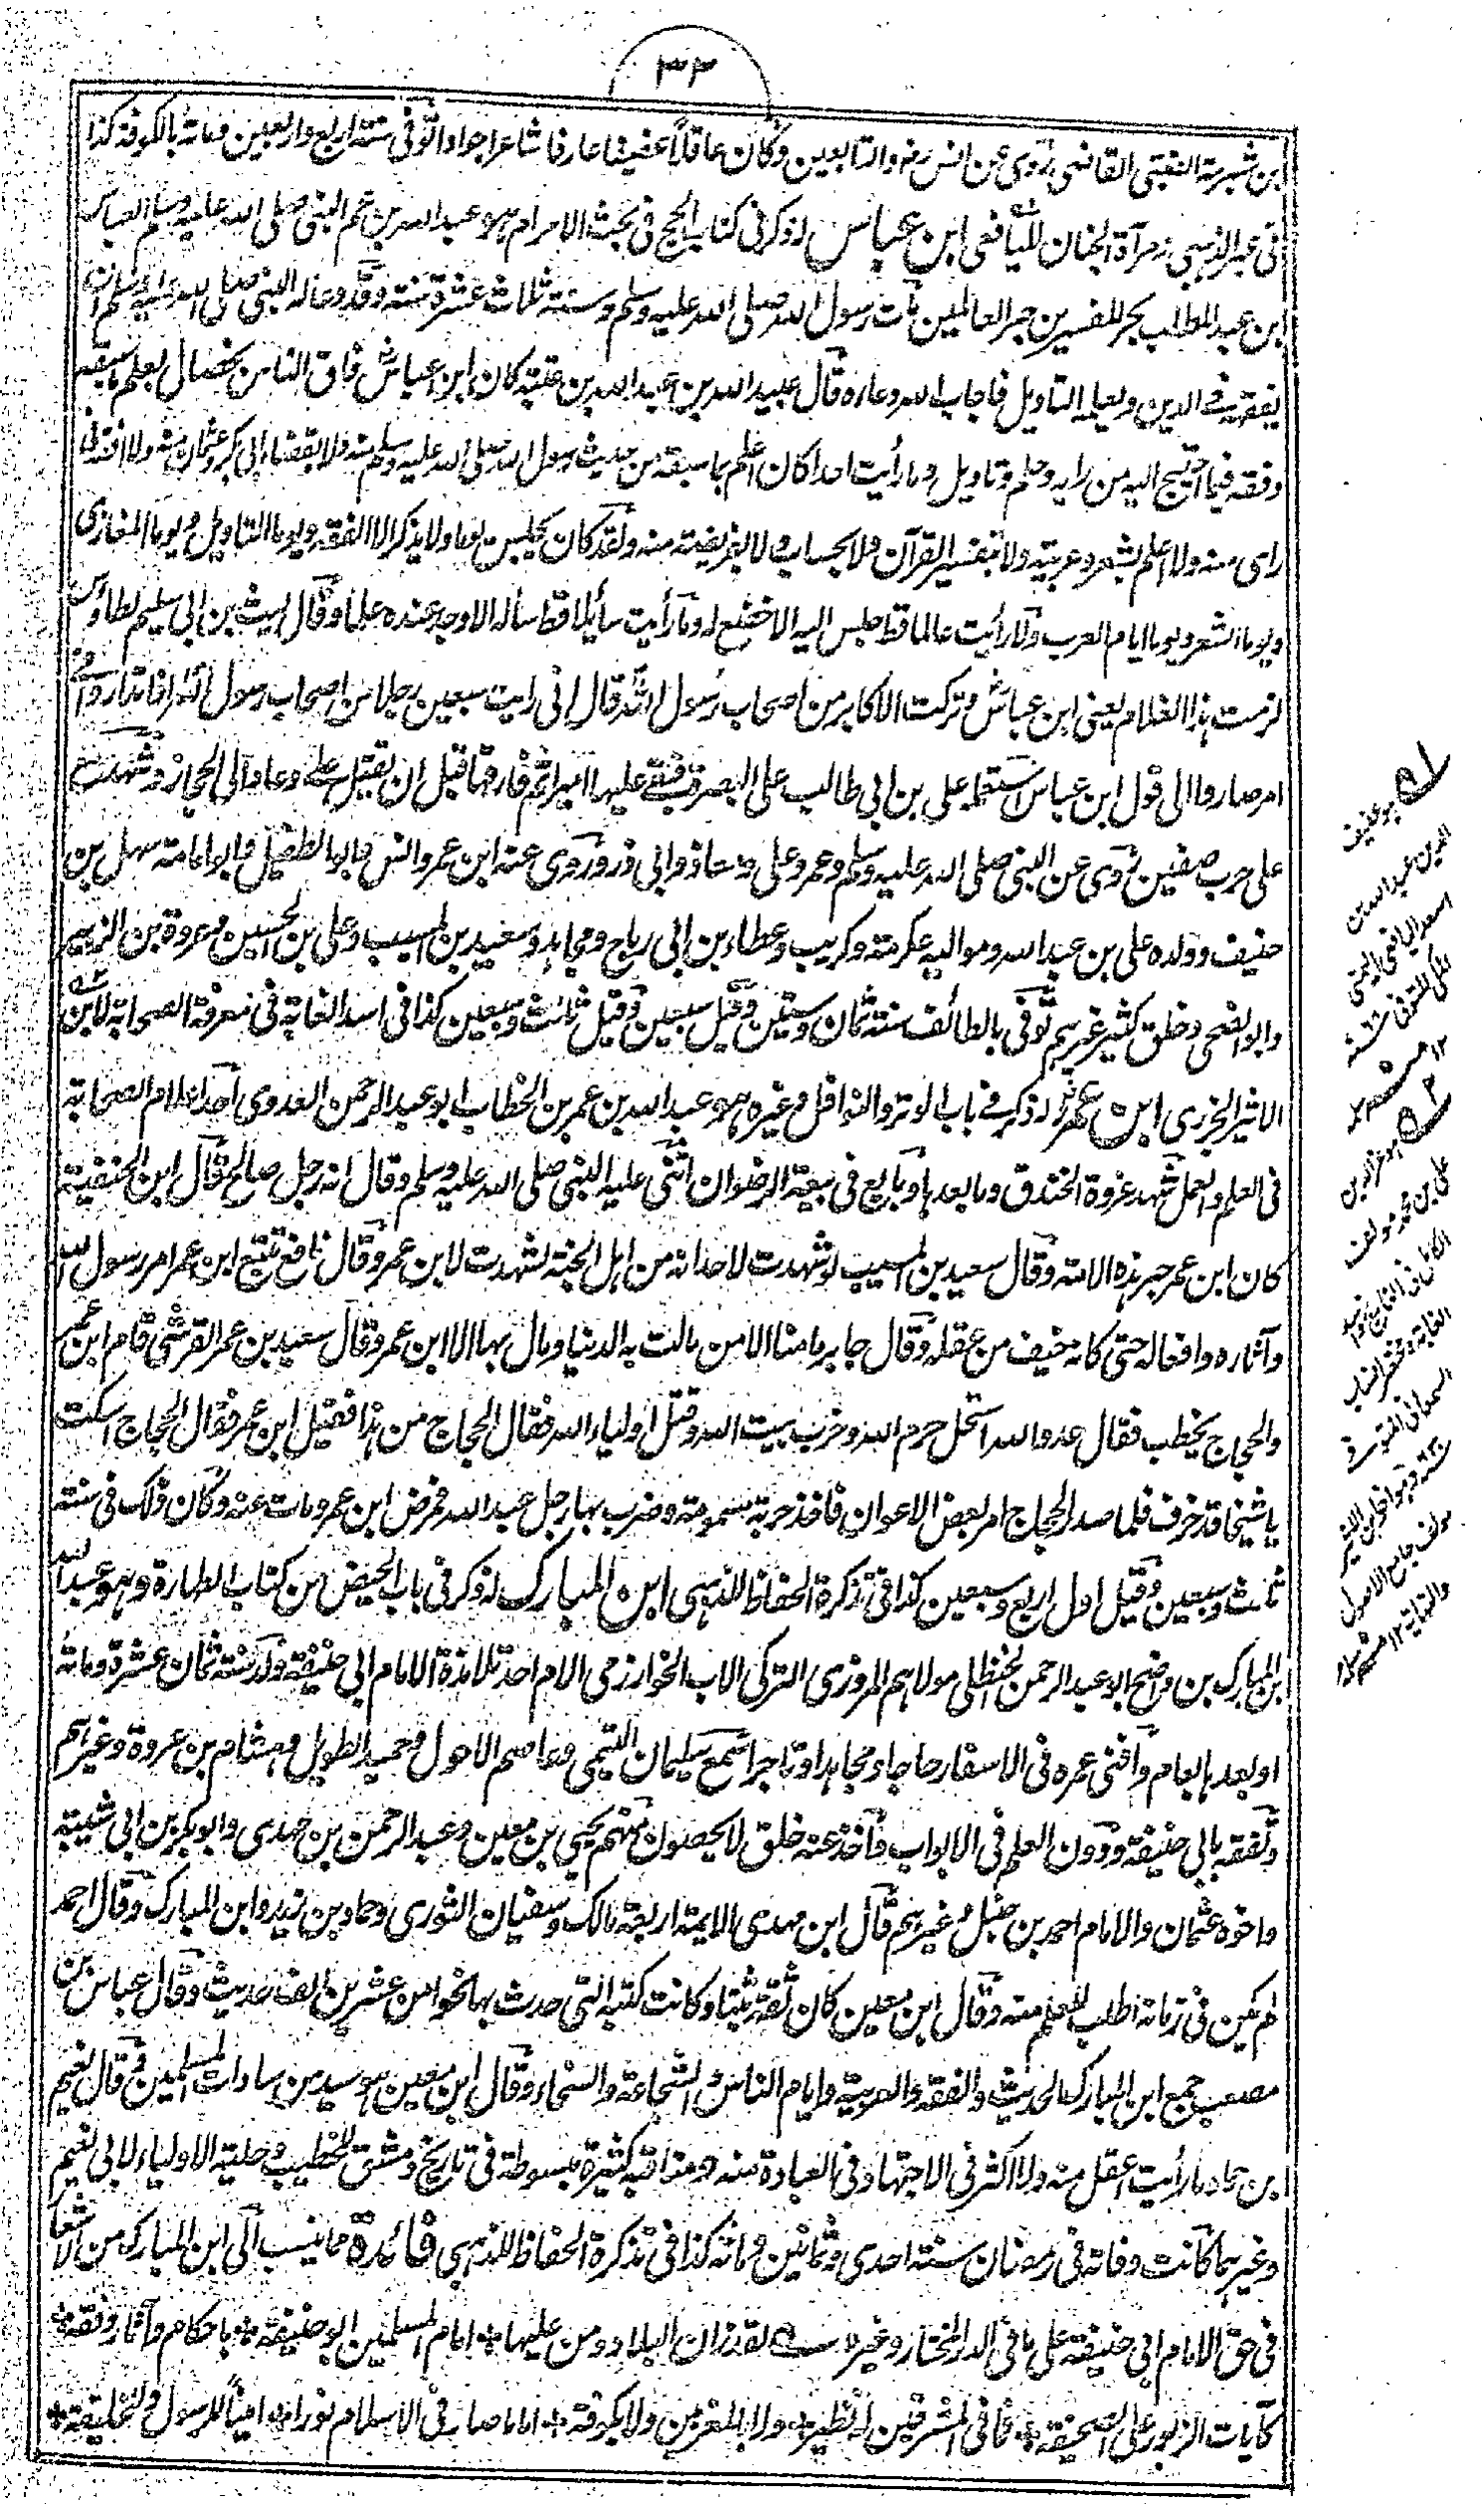 ٣٣
بن شبرمة الضبى القاضى روى عن انس رض والتابعين وكان عاقلاً عفيفا عارفا شاعرا جوادا توفى سنة اربع واربعين ومائة بالكوفة كذا
فى عبر الذهبى ومرآة الجنان لليافعى ابن عباس له ذكر فى كتاب الحج فى بحث الاحرام هو عبد الله بن عم النبى صلى الله عليه وسلم العباس
ابن عبد المطلب بحر المفسرين حبر العالمين مات رسول الله صلى الله عليه وسلم وسنه ثلاث عشرة سنة وقد دعا له النبى صلى الله عليه وسلم ان
يفقهه فى الدين ويعلمه التاويل فاجاب الله دعاءه قال عبيد الله بن عبد الله بن عتبة كان ابن عباس فاق الناس بخصال بعلم ما سبقه
وفقه فيما احتيج اليه من رايه وحلم وتاويل وما رأيت احدا كان اعلم بما سبقه من حديث رسول الله صلى الله عليه وسلم منه ولا بقضاء ابى بكر وعثمان منه ولا افقه فى
راى منه ولا اعلم بشعر وعربية ولا بتفسير القرآن ولا بحساب ولا بفريضة منه ولقد كان يجلس يوما ولا يذكر الا الفقه ويوما التاويل ويوما المغازى
ويوما الشعر ويوما ايام العرب ولا رأيت عالما قط جلس اليه الا خضع له وما رأيت سائلا قط سأله الا وجد عنده علما وقال ليث بن ابى سليم لطاوس
لزمت هذا الغلام يعنى ابن عباس وتركت الاكابر من اصحاب رسول الله قال انى رايت سبعين رجلا من اصحاب رسول الله اذا تدارؤا فى
امر صاروا الى قول ابن عباس استعمله على بن ابى طالب على البصرة فبقى عليها اميرا ثم فارقها قبل ان يقتل على وعاد الى الحجاز وشهد مع
على حرب صفين روى عن النبى صلى الله عليه وسلم وعمر وعلى ومعاذ وابى ذر وروى عنه ابن عمر وانس وابو الطفيل وابو امامة سهل بن
حنيف وولده على بن عبد الله ومواليه عكرمة وكريب وعطاء بن ابى رباح ومجاهد وسعيد بن المسيب وعلى بن الحسين وعروة بن الزبير
وابو الضحى وخلق كثير غيرهم توفى بالطائف سنة ثمان وستين وقيل سبعين وقيل ثلث وسبعين كذا فى اسد الغابة فى معرفة الصحابة لابن
الاثير الجزرى ابن عمر له ذكر فى باب الوتر والنوافل وغيره هو عبد الله بن عمر بن الخطاب ابو عبد الرحمن العدوى احد اعلام الصحابة
فى العلم والعمل شهد غزوة الخندق وما بعدها وبايع فى بيعة الرضوان اثنى عليه النبى صلى الله عليه وسلم وقال انه رجل صالح قال ابن الحنفية
كان ابن عمر حبر هذه الامة وقال سعيد بن المسيب لو شهدت لاحد انه من اهل الجنة لشهدت لابن عمر وقال نافع تتبع ابن عمر امر رسول الله
وآثاره وافعاله حتى كانه خيف من عقله وقال جابر ما منا الا من مالت به الدنيا ومال بها الا ابن عمر وقال سعيد بن عمر القرشى قام ابن عمر
والحجاج يخطب فقال عدو الله استحل حرم الله وخرب بيت الله وقتل اولياء الله فقال الحجاج من هذا فقيل ابن عمر فقال الحجاج اسكت
يا شيخا قد خرف فلما صدر الحجاج امر بعض الاعوان فاخذ حربة مسمومة وضرب بها رجل عبد الله فمرض ابن عمر ومات عنه وكان ذلك فى سنة
ثلث وسبعين وقيل اول اربع وسبعين كذا فى تذكرة الحفاظ للذهبى ابن المبارك له ذكر فى باب الحيض من كتاب الطهارة وهو عبد الله
ابن المبارك بن واضح ابو عبد الرحمن الحنظلى مولاهم المروزى التركى الاب الخوارزمى الام احد تلامذة الامام ابى حنيفة ولد سنة ثمان عشرة ومائة
او بعدها بعام وافنى عمره فى الاسفار حاجا ومجاهدا وتاجرا سمع سليمان التيمى وعاصم الاحول وحميد الطويل وهشام بن عروة وغيرهم
وتفقه بابى حنيفة ودون العلم فى الابواب فاخذ عنه خلق لا يحصون منهم يحيى بن معين وعبد الرحمن بن مهدى وابو بكر بن ابى شيبة
واخوه عثمان والامام احمد بن حنبل وغيرهم قال ابن مهدى الايمة اربعة مالك وسفيان الثورى وحماد بن زيد وابن المبارك وقال احمد
لم يكن فى زمانه اطلب للعلم منه وقال ابن معين كان ثقة ثبتا وكانت كتبه التى حدث بها نحوا من عشرين الف حديث وقال عباس بن
مصعب جمع ابن المبارك الحديث والفقه والعربية وايام الناس والشجاعة والسخاء وقال ابن معين هو سيد من سادات المسلمين وقال نعيم
ابن حماد ما رأيت اعقل منه ولا اكثر فى الاجتهاد فى العبادة منه ومناقبه كثيرة مبسوطة فى تاريخ دمشق للخطيب وحلية الاولياء لابى نعيم
وغيرهما كانت وفاته فى رمضان سنة احدى وثمانين ومائة كذا فى تذكرة الحفاظ للذهبى فائدة مما ينسب الى ابن المبارك من الاشعار
فى حق الامام ابى حنيفة على ما فى الدر المختار وغيره لقد زان البلاد ومن عليها * امام المسلمين ابو حنيفة * باحكام وآثار وفقه *
كآيات الزبور على الصحيفة * فما فى المشرقين له نظير * ولا بالمغربين ولا بكوفة * اماما صار فى الاسلام نورا * امينا للرسول وللخليفة *
هو عفيف
الدين عبد الله بن
اسعد اليافعى اليمنى
المكى المتوفى سنة
هو عز الدين
على بن محمد مولف
الكامل فى التاريخ واسد
الغابة ومختصر انساب
السمعانى المتوفى
سنة ٦٣٠ وهو اخو ابن الاثير
مولف جامع الاصول
والنهاية ١٢ منه